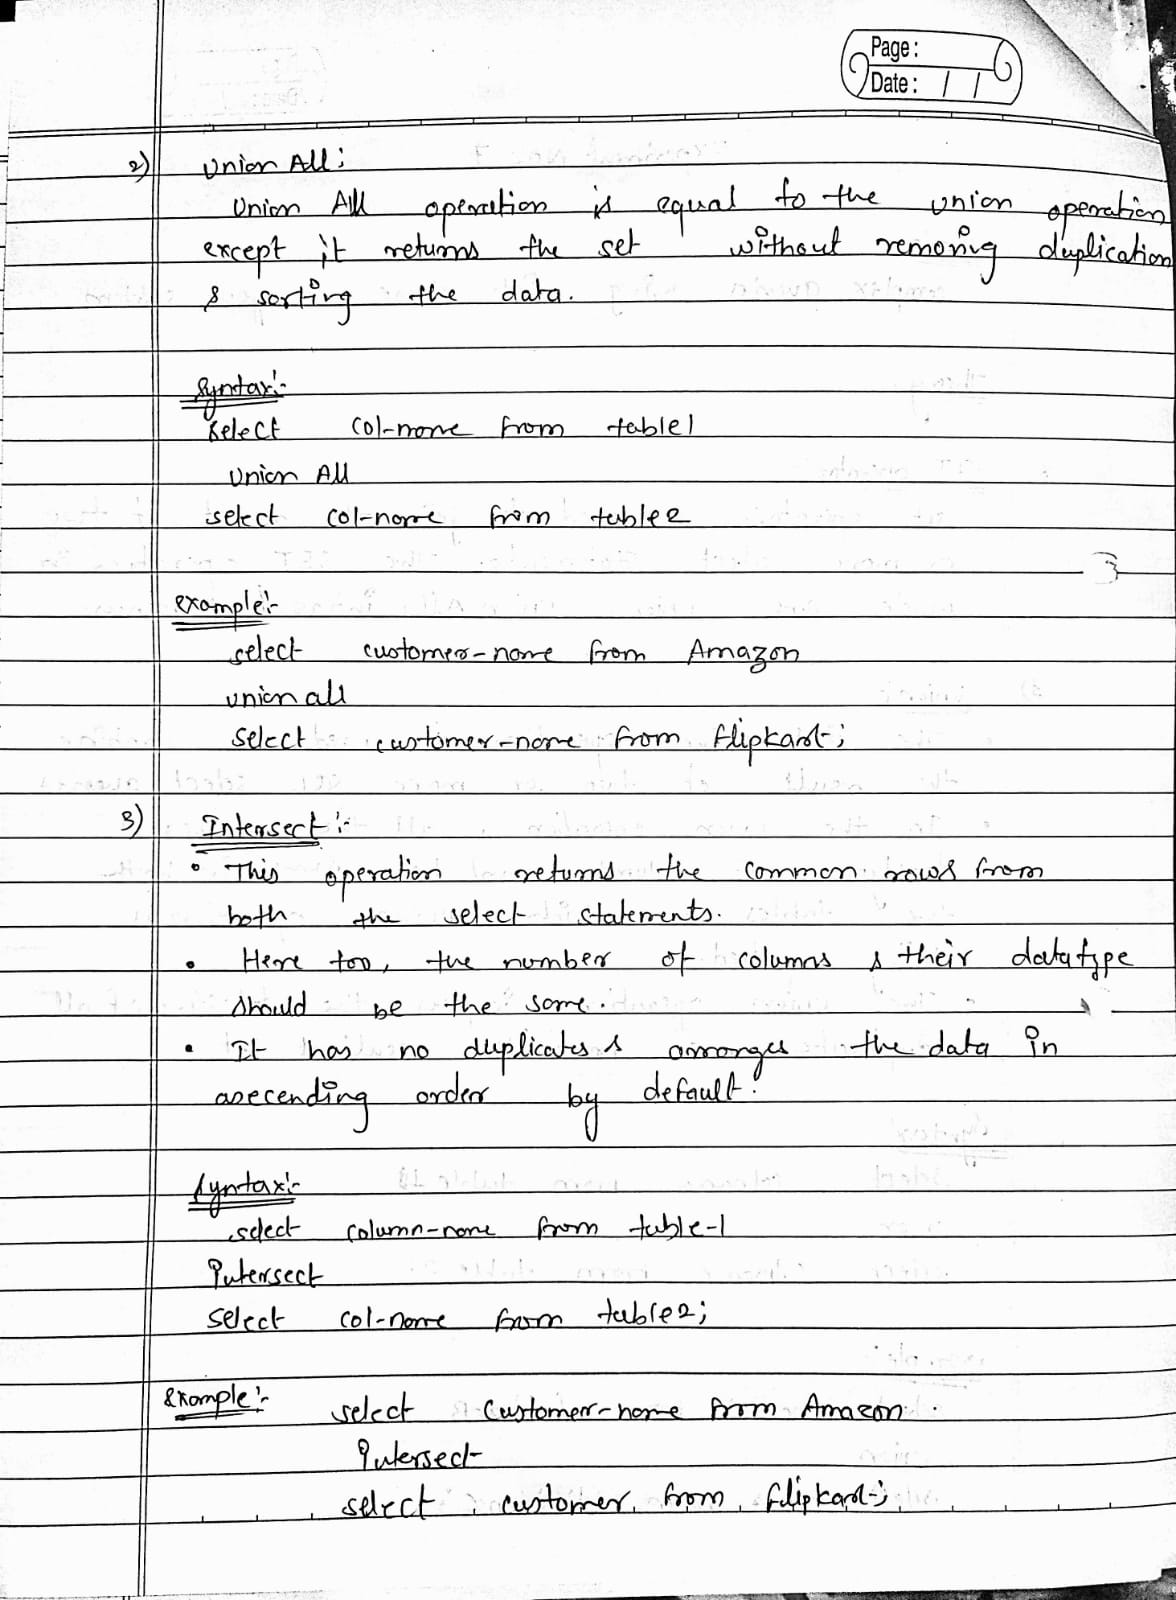 Page:
Date: / /
2) Union All:
Union All operation is equal to the union operation
except it returns the set without removing duplication
& sorting the data.
Syntax:-
select col-name from table1
Union All
select col-name from table2
example:-
select customer-name from Amazon
union all
select customer-name from flipkart;
3) Intersect:-
• This operation returns the common rows from
both the select statements.
• Here too, the number of columns & their datatype
should be the same.
• It has no duplicates & arranges the data in
asecending order by default.
Syntax:-
select column-name from table-1
Intersect
select col-name from table2;
Example:- select customer-name from Amazon.
Intersect
select customer from flipkart;